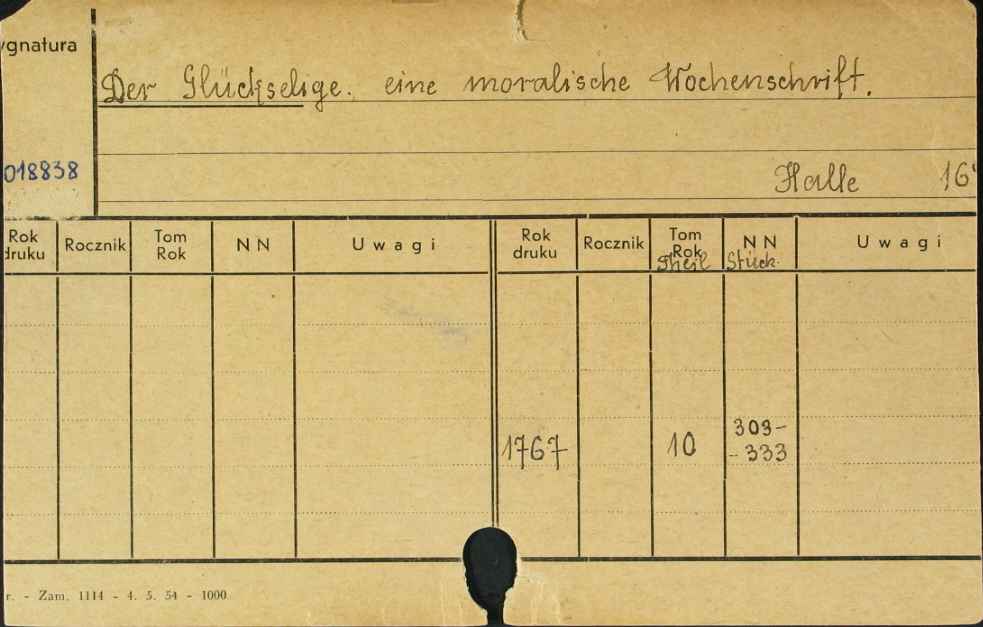 ygnatura
Der Glückselige. eine moralische Wochenschrift.
018838
Halle 16°
Rok druku Rocznik Tom Rok NN Uwagi Rok druku Rocznik Tom Rok Theil NN Stück. Uwagi
1767 10 303-
- 333
r. - Zam. 1114 - 4. 5. 54 - 1000